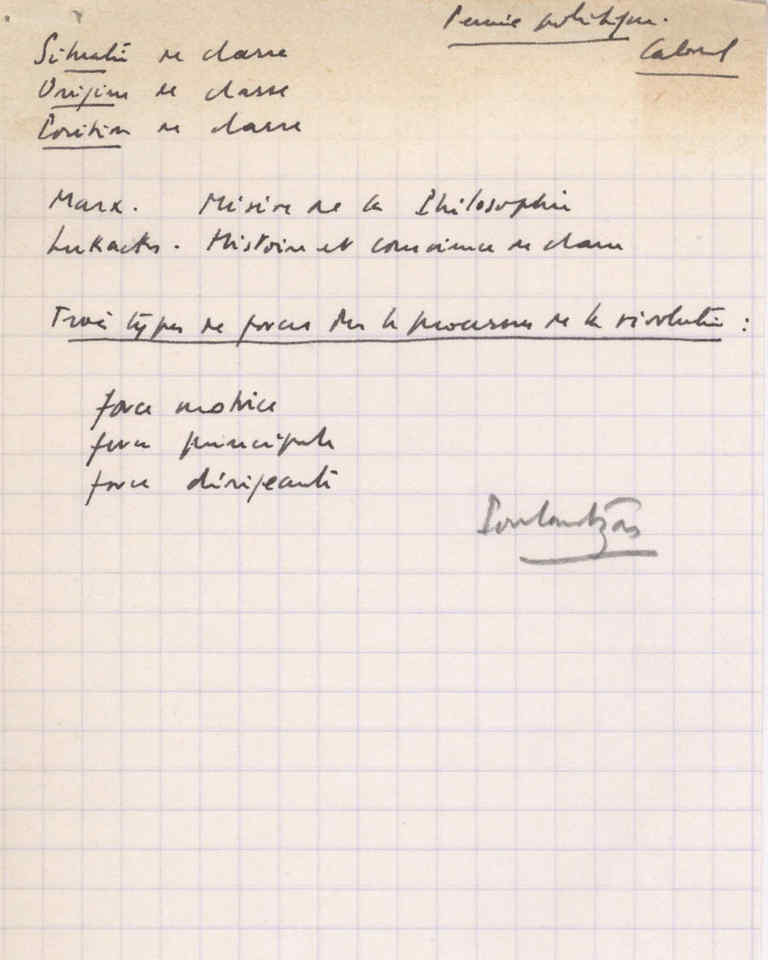 Pensée politique.
Cabral
Situation de classe
Origine de classe
Position de classe
Marx. Misère de la Philosophie
Lukacks. Histoire et conscience de classe
Trois types de forces ds le processus de la révolution :
force motrice
force principale
force dirigeante
Poulantzas